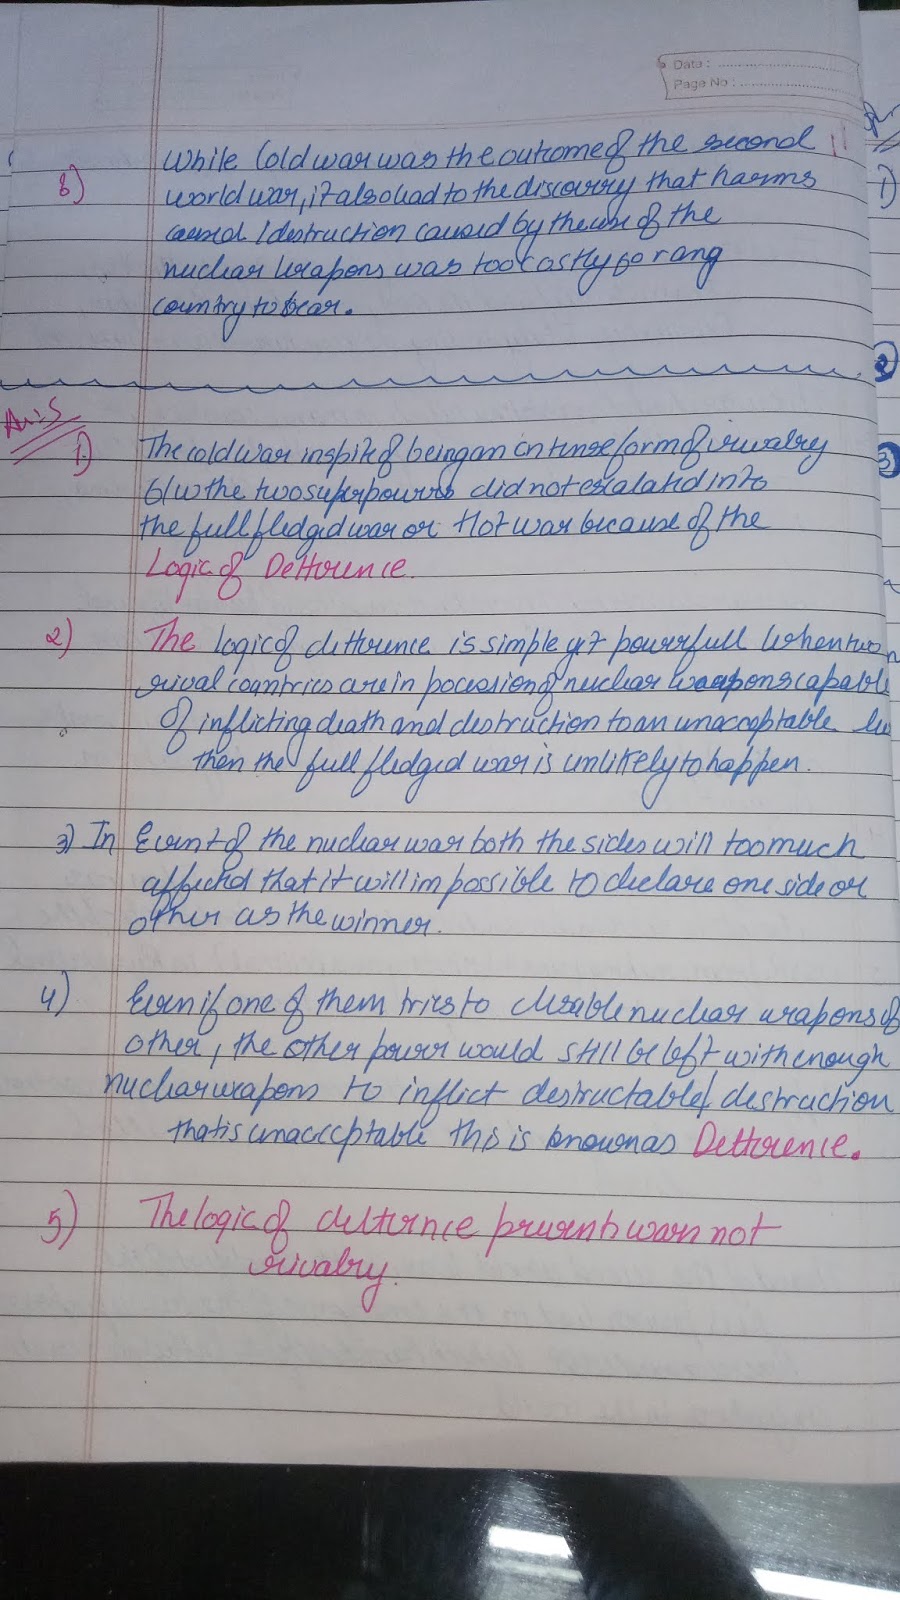 Date :
Page No :
8) While Cold war was the outcome of the second
world war, it also lead to the discovery that harms
caused / destruction caused by the use of the
nuclear weapons was too costly for any
country to bear.
Ans:5
1.) The cold war inspite of being an intense form of rivalry
b/w the two superpowers did not escalated into
the full fledged war or Hot war because of the
Logic of Detterence.
2) The logic of detterence is simple yet powerfull when two
rival countries are in pocession of nuclear weapons capable
of inflicting death and destruction to an unacceptable
then the full fledged war is unlikely to happen.
3) In Event of the nuclear war both the sides will too much
affected that it will impossible to declare one side or
other as the winner.
4) Even if one of them tries to disable nuclear weapons of
other, the other power would still be left with enough
nuclear weapons to inflict destructable / destruction
that is unacceptable this is known as Detterence.
5) The logic of deterrence prevents wars not
rivalry.
1)
2
3